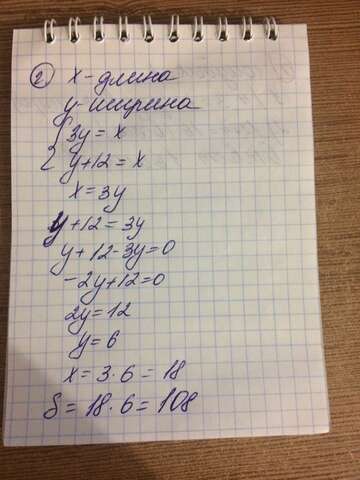 ② x - длина
y - ширина
{ 3y = x
y + 12 = x
x = 3y
y + 12 = 3y
y + 12 - 3y = 0
-2y + 12 = 0
2y = 12
y = 6
x = 3 · 6 = 18
S = 18 · 6 = 108